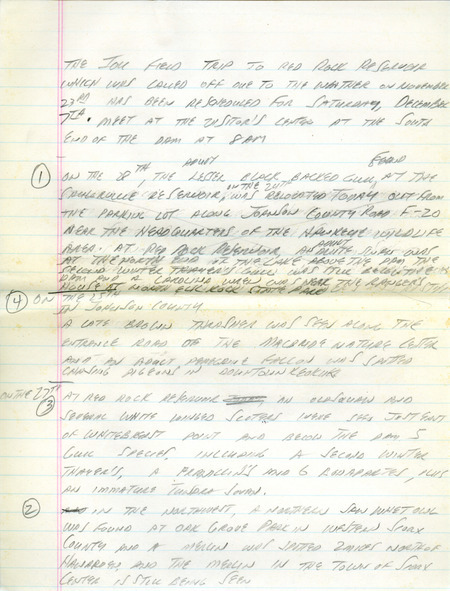 THE IOU FIELD TRIP TO RED ROCK RESERVOIR
WHICH WAS CALLED OFF DUE TO THE WEATHER ON NOVEMBER
23RD HAS BEEN RESCHEDULED FOR SATURDAY, DECEMBER
7TH. MEET AT THE VISITOR'S CENTER AT THE SOUTH
END OF THE DAM AT 8 AM
① ON THE 28TH, THE ADULT LESSER BLACK BACKED GULL, FOUND AT THE
RESERVOIR, ON THE 24TH WAS RELOCATED TODAY OUT FROM
THE PARKING LOT ALONG JOHNSON COUNTY ROAD F-20
NEAR THE HEADQUARTERS OF THE HAWKEYE WILDLIFE
AREA. AT RED ROCK RESERVOIR, AN ADULT WAS
AT THE NORTH END OF THE LAKE ABOVE THE DAM THE
SECOND WINTER THAYER'S GULL WAS STILL BELOW THE
DAM AND A CAROLINA WREN WAS NEAR THE RANGERS
HOUSE AT ROCK STATE PARK
④ ON THE 25TH
IN JOHNSON COUNTY
A LATE BROWN THRASHER WAS SEEN ALONG THE
ENTRANCE ROAD OF THE MACBRIDE NATURE CENTER
AND AN ADULT PEREGRINE FALCON WAS SPOTTED
CHASING PIGEONS IN DOWNTOWN KEOKUK
ON THE 27TH
③ AT RED ROCK RESERVOIR AN OLDSQUAW AND
SEVERAL WHITE WINGED SCOTERS WERE SEEN JUST EAST
OF WHITEBREAST POINT AND BELOW THE DAM 5
GULL SPECIES INCLUDING A SECOND WINTER
THAYER'S, A FRANKLIN'S AND 6 BONAPARTES, PLUS
AN IMMATURE TUNDRA SWAN.
② IN THE NORTHWEST, A NORTHERN SAW WHET OWL
WAS FOUND AT OAK GROVE PARK IN WESTERN SIOUX
COUNTY AND A MERLIN WAS SPOTTED 2 MILES NORTH OF
HAWARDEN, AND THE MERLIN IN THE TOWN OF SIOUX
CENTER IS STILL BEING SEEN